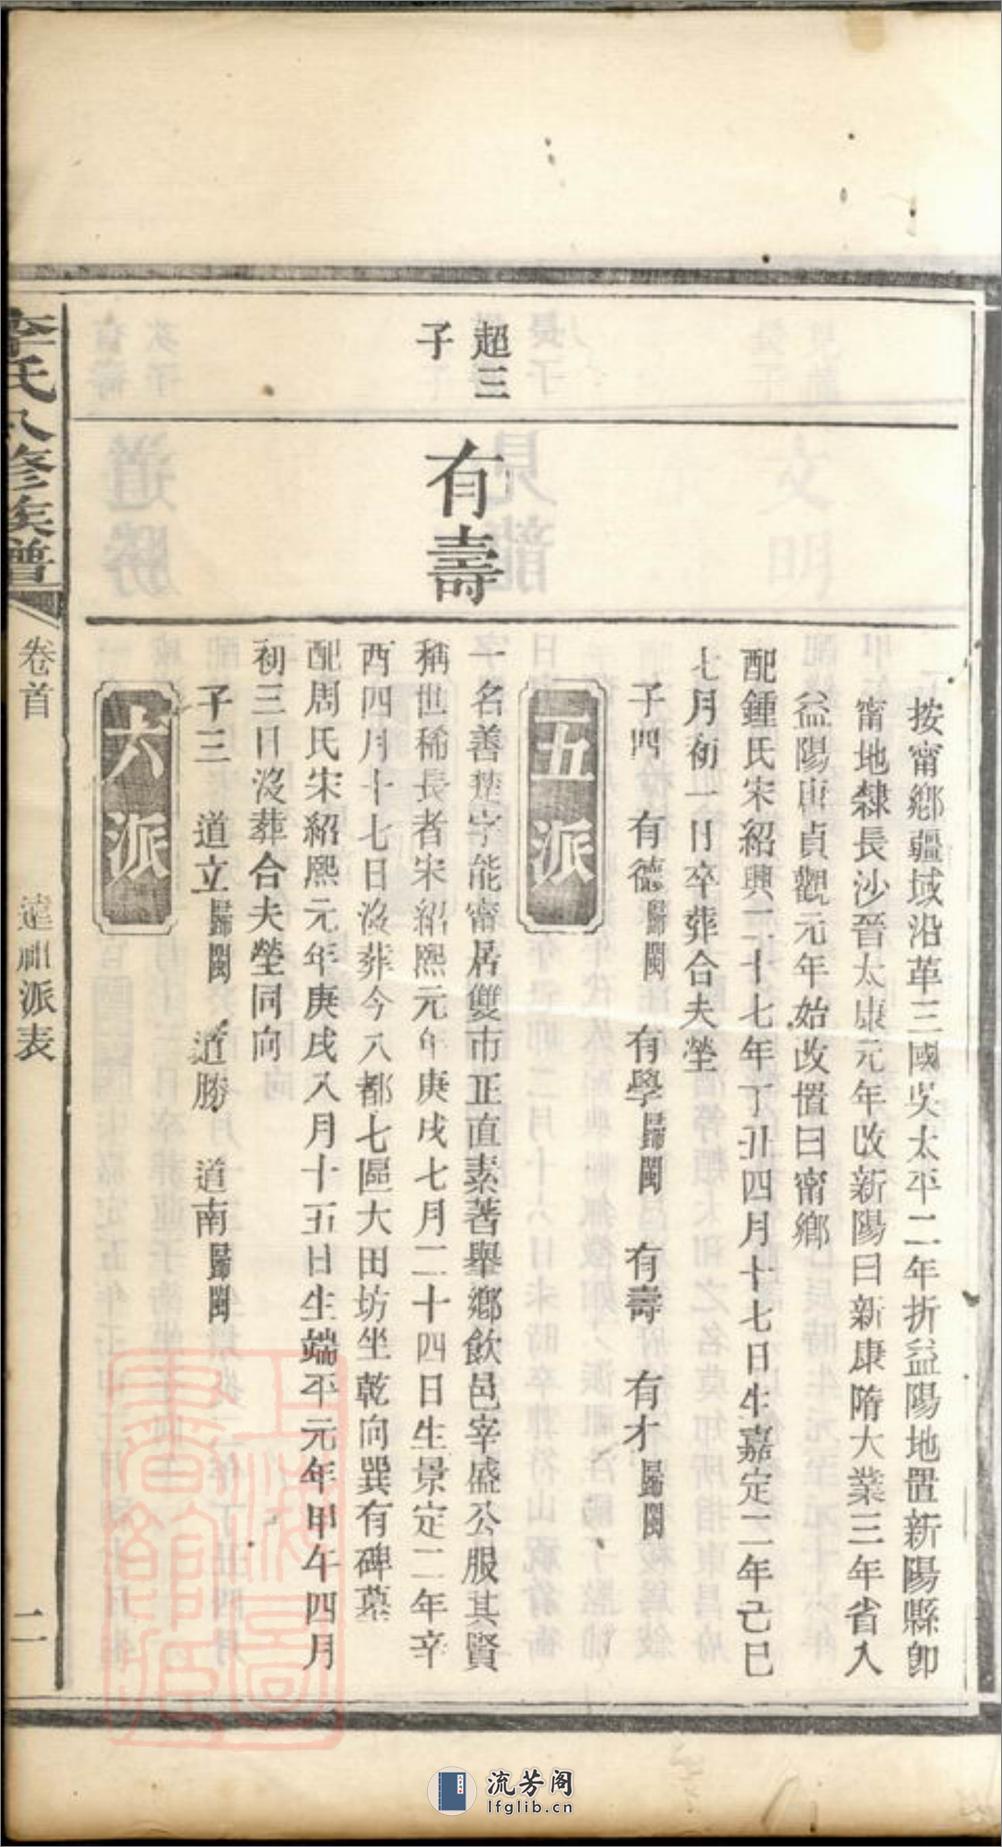 按甯鄉疆域沿革三國吳太平二年折益陽地置新陽縣卽
甯地隸長沙晉太康元年改新陽曰新康隋大業三年省入
益陽唐貞觀元年始改置曰甯鄉
配鍾氏宋紹興二十七年丁丑四月十七日生嘉定二年己巳
七月初一日卒葬合夫塋
子四 有德歸閩 有學歸閩 有壽 有才歸閩
五派
超三
子
有壽
一名善楚字能甯居雙市正直素著舉鄉飲邑宰盛公服其賢
稱世稀長者宋紹熙元年庚戌七月二十四日生景定二年辛
酉四月十七日沒葬今八都七區大田坊坐乾向巽有碑墓
配周氏宋紹熙元年庚戌入月十五日生端平元年甲午四月
初三日沒葬合夫塋同向
子三 道立歸閩 道勝 道南歸閩
六派
李氏八修族譜
卷首
遠祖派表
二
流芳阁
lfglib.cn